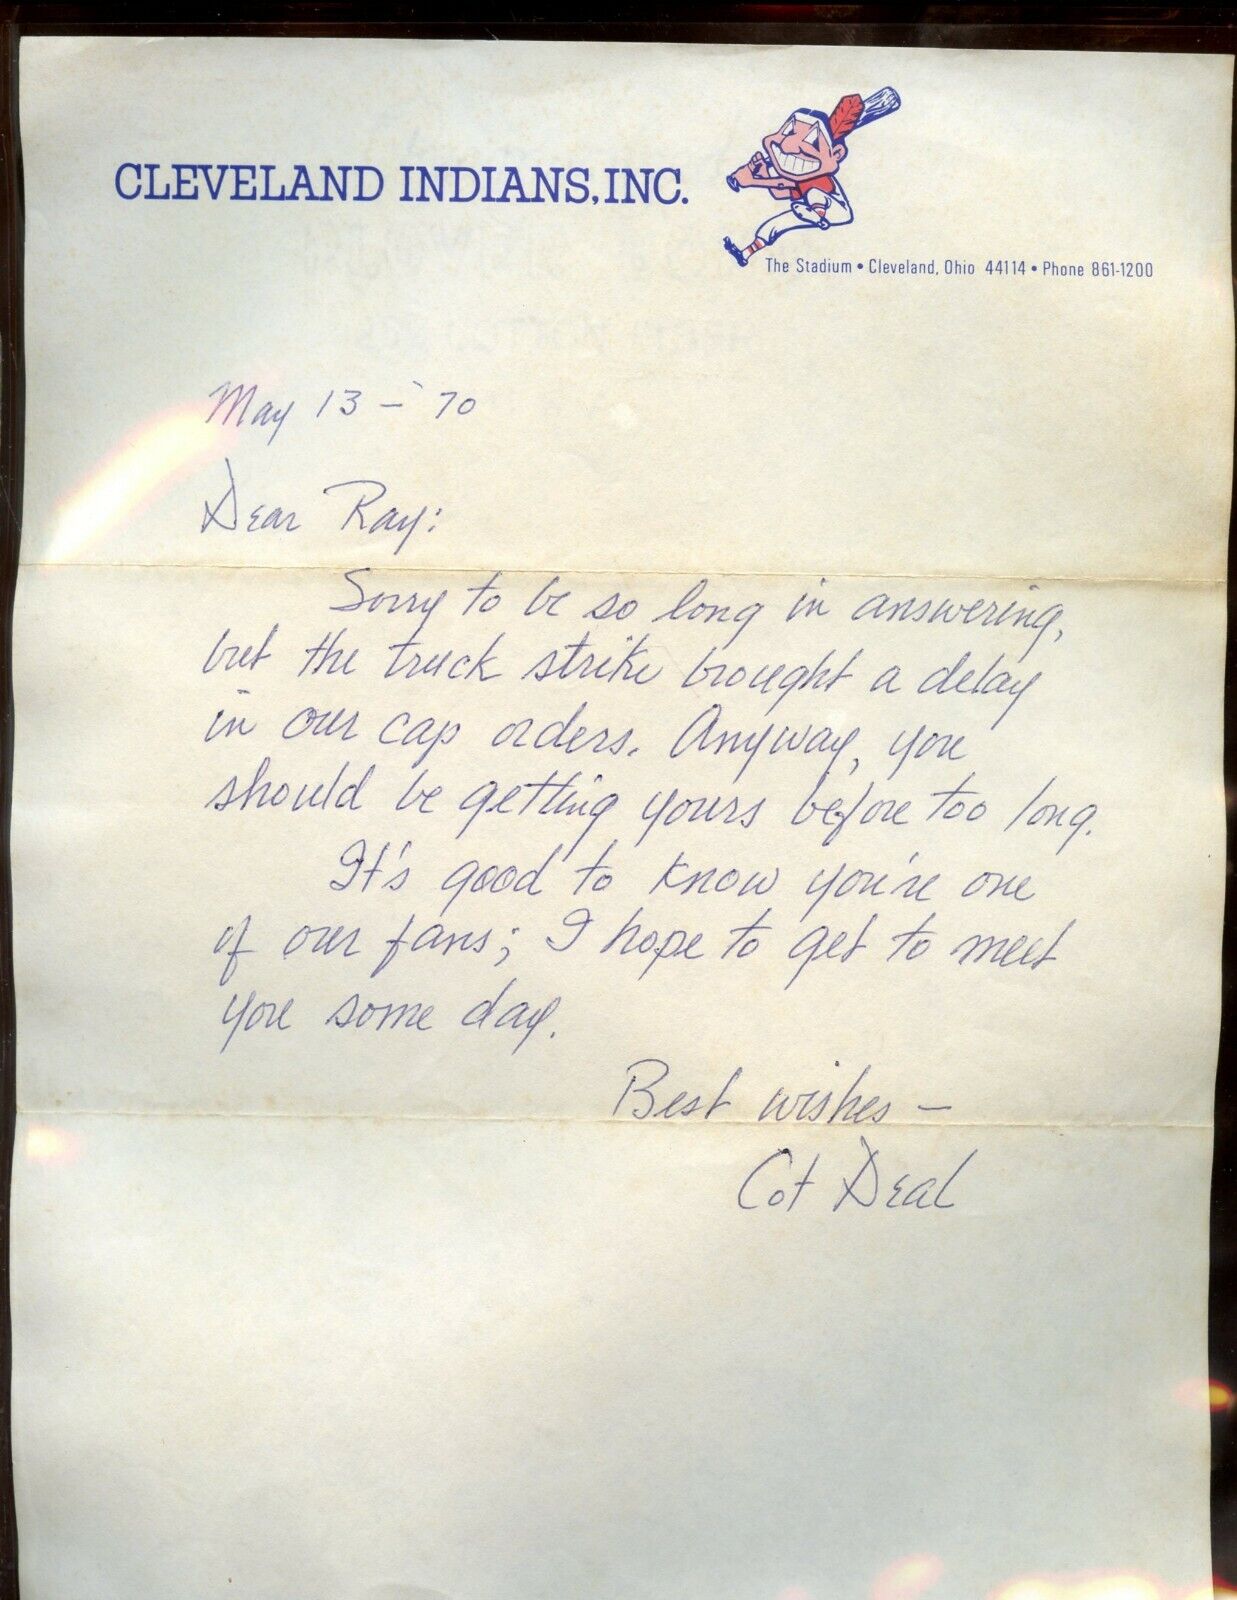 CLEVELAND INDIANS, INC.
The Stadium • Cleveland, Ohio 44114 • Phone 861-1200
May 13 - '70
Dear Ray:
Sorry to be so long in answering,
but the truck strike brought a delay
in our cap orders. Anyway, you
should be getting yours before too long.
It's good to know you're one
of our fans; I hope to get to meet
you some day.
Best wishes -
Cot Deal